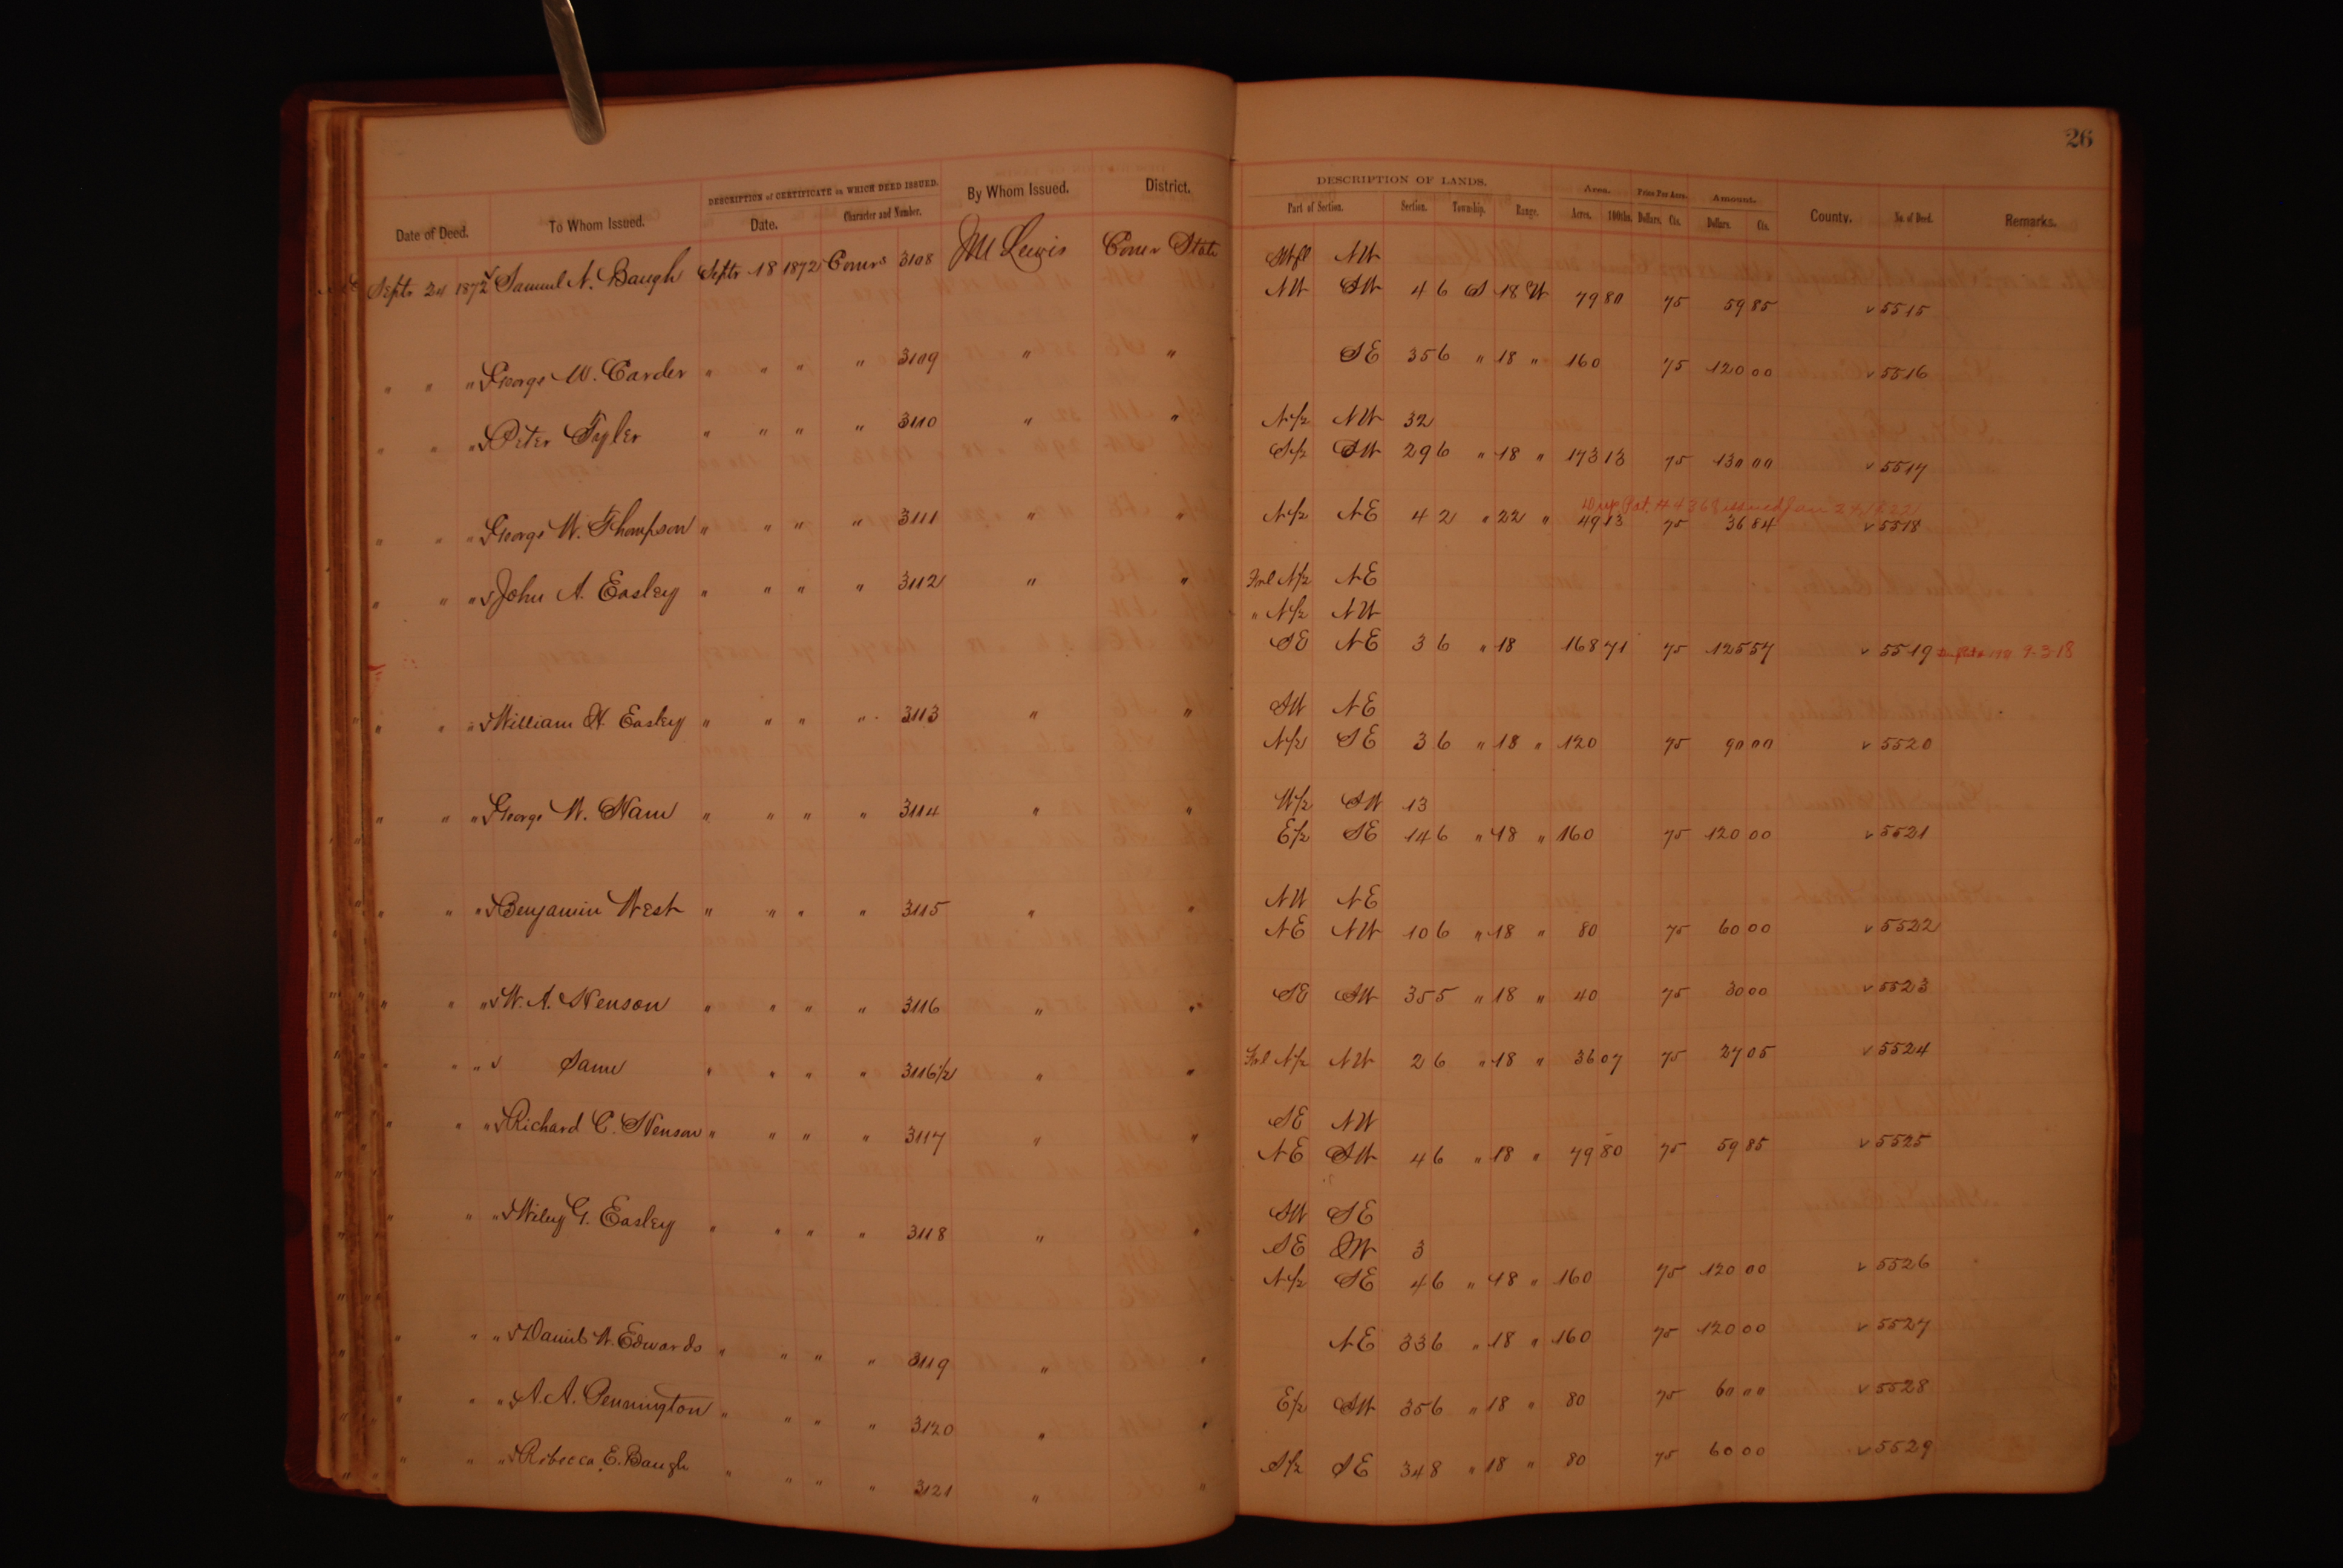 26
DESCRIPTION of CERTIFICATE on WHICH DEED ISSUED. By Whom Issued. District. DESCRIPTION OF LANDS. Area. Price Per Acre. Amount.
Date of Deed. To Whom Issued. Date. Character and Number. Part of Section. Section. Township. Range. Acres. 100ths. Dollars. Cts. Dollars. Cts. County. No. of Deed. Remarks.
Septr 24 1872 Samuel N. Baugh Septr 18 1872 Comrs 3108 JM Lewis Comr State NW
NW SW 4 6 S 18 W 79 80 75 59 85 v 5515
" " " George W. Carder " " " " 3109 " " SE 35 6 " 18 " 160 75 120 00 v 5516
" " " Peter Tyler " " " " 3110 " " N/2 NW 32
S/2 SW 29 6 " 18 " 173 13 75 130 00 v 5517
issued Jan
" " " George W. Thompson " " " " 3111 " " N/2 NE 4 2 " 22 " 49 13 75 36 84 v 5518
" " " John A. Easley " " " " 3112 " " Frl N/2 NE
" N/2 NW
SE NE 3 6 " 18 168 71 75 125 57 v 5519 9-3-18
" " " William H. Easley " " " " 3113 " " SW NE
N/2 SE 3 6 " 18 " 120 75 90 00 v 5520
" " " George W. Ham " " " " 3114 " " W/2 SW 13
E/2 SE 14 6 " 18 " 160 75 120 00 v 5521
" " " Benjamin West " " " " 3115 " " NW NE
NE NW 10 6 " 18 " 80 75 60 00 v 5522
" " " W. A. Henson " " " " 3116 " " SE SW 35 5 " 18 " 40 75 30 00 v 5523
" " v Same " " " " 3116 1/2 " " Frl N/2 NW 2 6 " 18 " 36 07 75 27 05 v 5524
" " " Richard C. Henson " " " " 3117 " " SE NW
NE SW 4 6 " 18 " 79 80 75 59 85 v 5525
" " " Wiley G. Easley " " " " 3118 " " SW SE
SE SW 3
N/2 SE 4 6 " 18 " 160 75 120 00 v 5526
" " " Daniel W. Edwards " " " " 3119 " " NE 33 6 " 18 " 160 75 120 00 v 5527
" " " A. A. Pennington " " " " 3120 " " E/2 SW 35 6 " 18 " 80 75 60 00 v 5528
" " " Rebecca E. Baugh " " " " 3121 " " S/2 SE 34 8 " 18 " 80 75 60 00 v 5529